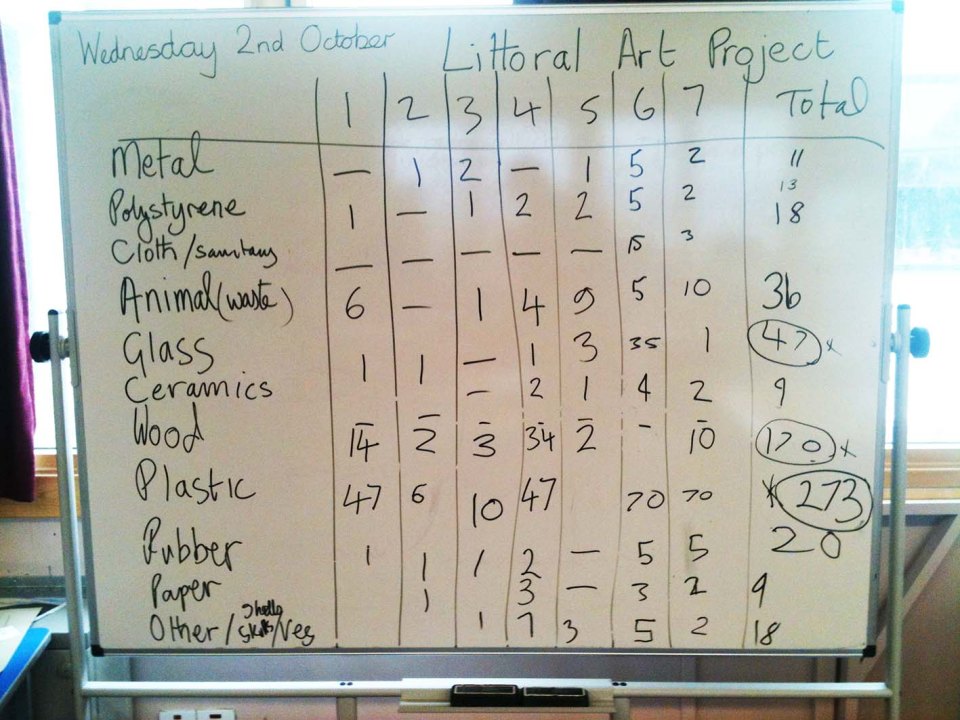 Wednesday 2nd October Littoral Art Project
1 2 3 4 5 6 7 Total
Metal — 1 2 — 1 5 2 11
Polystyrene 1 — 1 2 2 5 2 13
Cloth/sanitary — — — — — 15 3 18
Animal (waste) 6 — 1 4 9 5 10 36
Glass 1 1 — 1 3 35 1 47 x
Ceramics — — — 2 1 4 2 9
Wood 14 2 3 34 2 - 10 170 x
Plastic 47 6 10 47 70 70 x 273
Rubber 1 1 1 2 — 5 5 20
Paper 1 3 — 3 2 9
Other/Shells/Veg 1 7 3 5 2 18